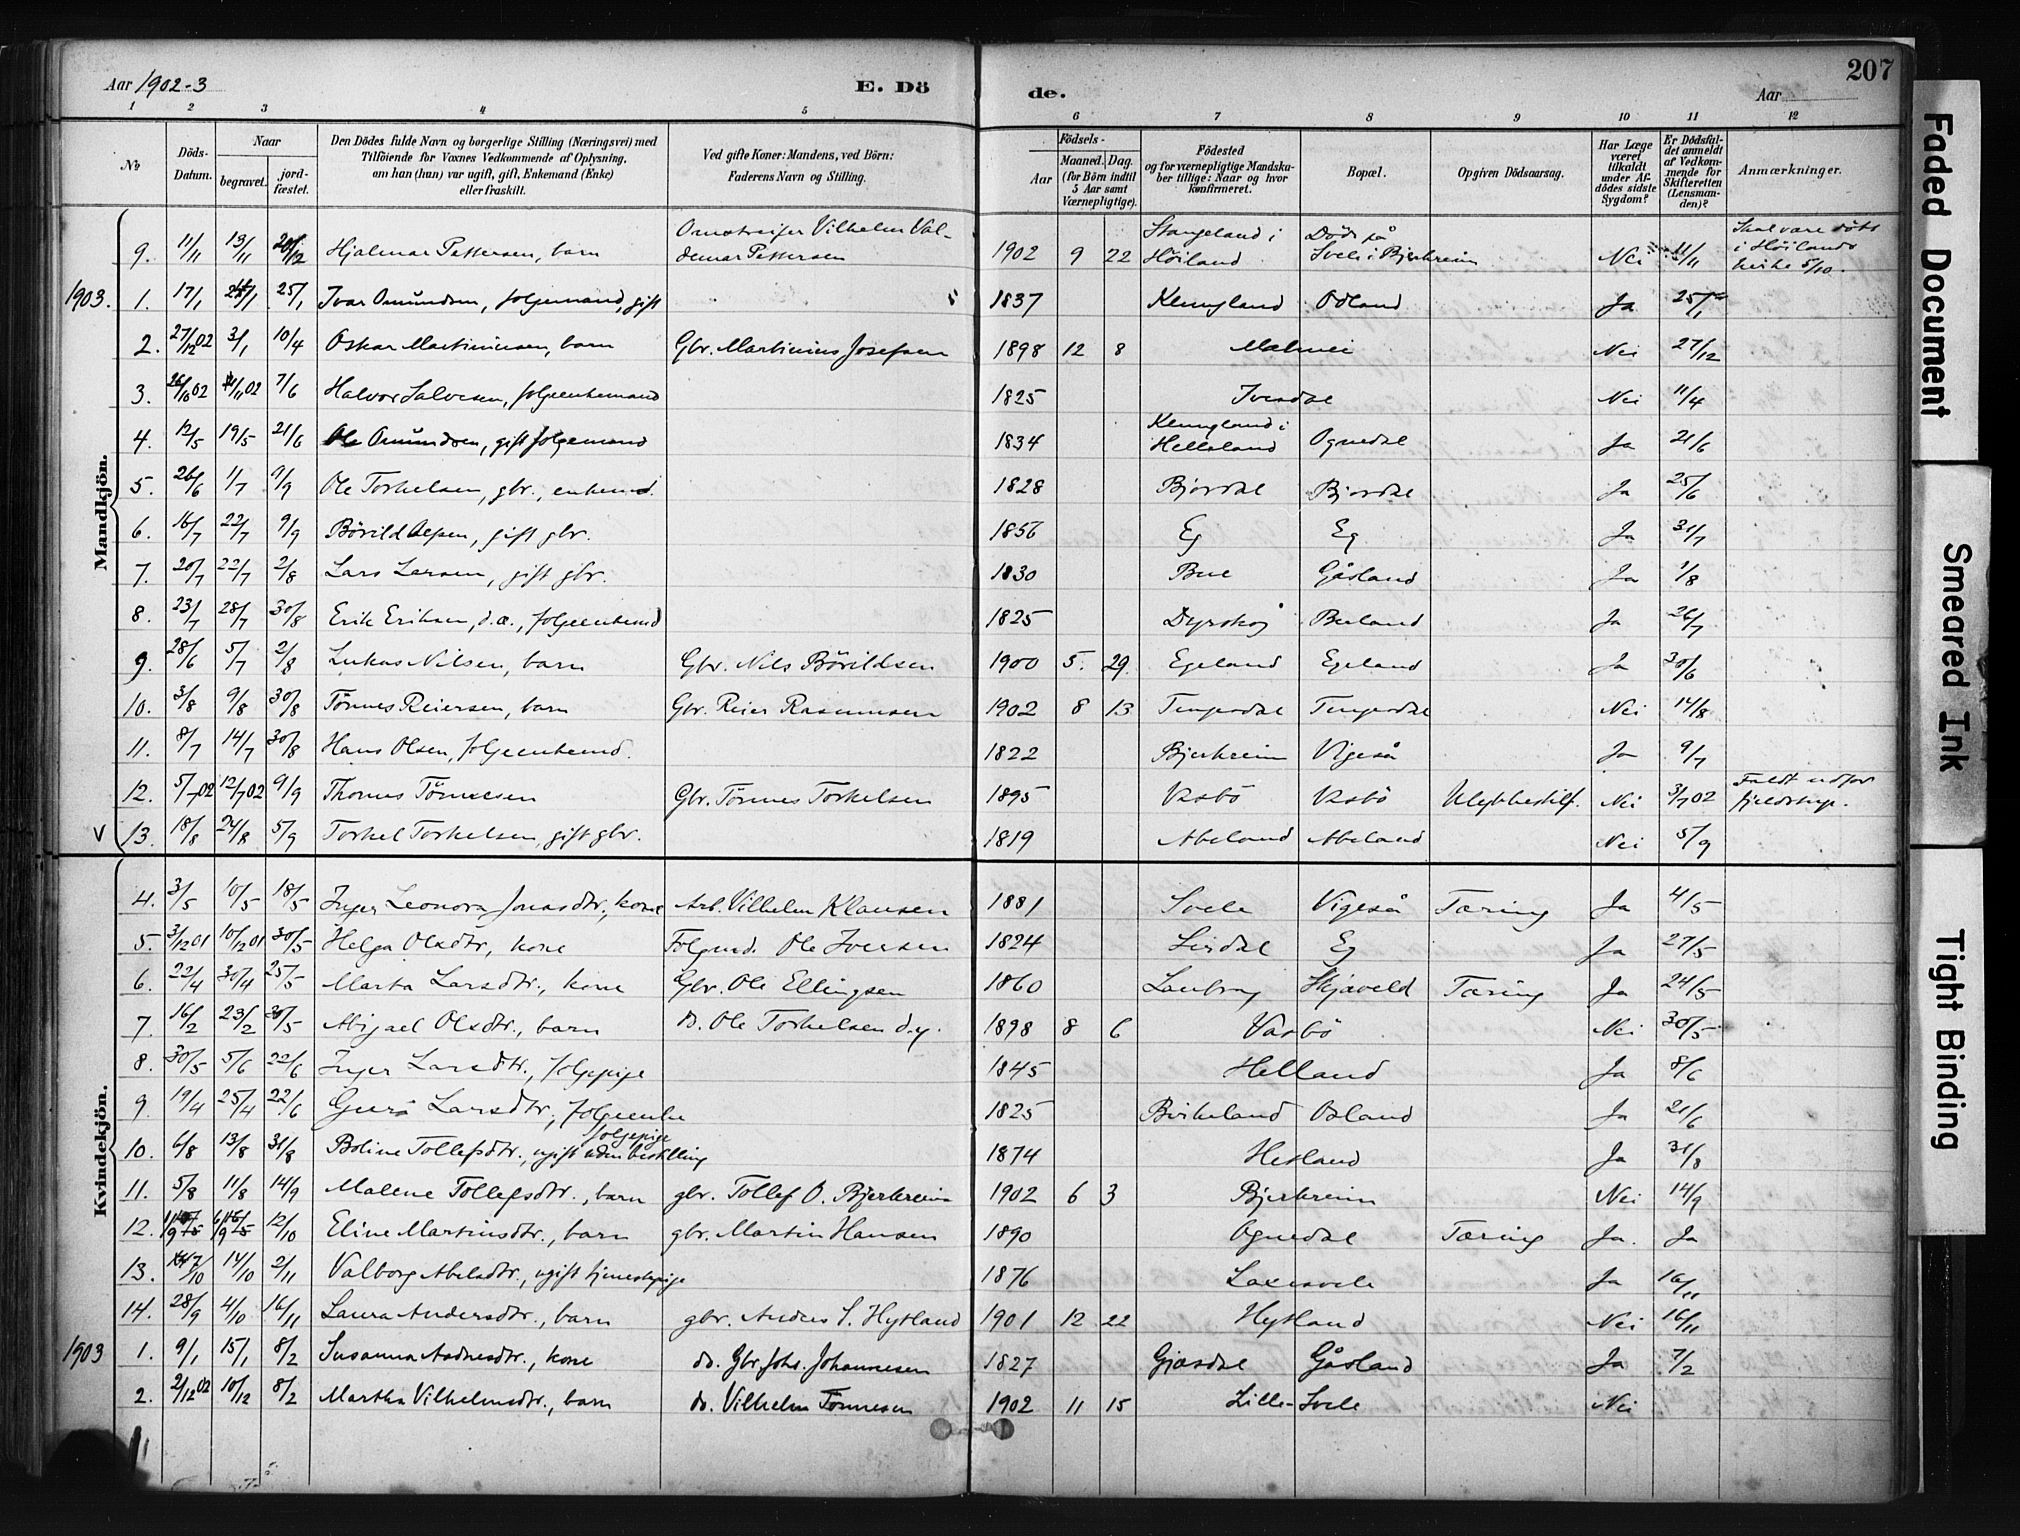 Aar 1902-3 E. Dö de. Aar 207
1 2 3 4 5 6 7 8 9 10 11 12
No Döds-Datum. Naar begravet. jord-fæstet. Den Dödes fulde Navn og borgerlige Stilling (Næringsvei) med Tilföiende for Voxnes Vedkommende af Oplysning, om han (hun) var ugift, gift, Enkemand (Enke) eller fraskilt. Ved gifte Koner: Mandens, ved Börn: Faderens Navn og Stilling. Födsels- Aar Maaned. Dag. (for Börn indtil 5 Aar samt Værnepligtige). Födested og for værnepligtige Mandskaber tillige: Naar og hvor konfirmeret. Bopæl. Opgiven Dödsaarsag. Har Læge været tilkaldt under Afdödes sidste Sygdom? Er Dödsfaldet anmeldt af Vedkommende for Skifteretten (Lensmanden)? Anmærkninger.
Mandkjön.
9. 11/11 13/11 Hjalmar Pettersen, barn Omstreifer Vilhelm Valdemar Pettersen 1902 9 22 Stangeland i Höiland Död på Svele i Bjerkreim Nei 11/11 Skal være döbt i Höilands kirke 5/10.
1903. 1. 17/1 25/1 Ivar Omundsen, folgemand, gift 1837 Kenngland Odland Ja 25/1
2. 27/12 02 3/1 10/4 Oskar Martiniusen, barn Gbr. Martinius Josefsen 1898 12 8 Malmei Nei 27/12
3. 26/10 02 /11 02 7/6 Halvor Salvesen, folgeenkemand 1825 Ivesdal Nei 11/4
4. 12/5 19/5 21/6 Ole Omundsen, gift folgemand 1834 Kenngland i Helleland Ognedal Ja 21/6
5. 26/6 1/7 9/9 Ole Torkelsen, gbr., enkemd. 1828 Bjordal Bjordal Ja 25/6
6. 16/7 22/7 9/9 Börild Aslpen, gift gbr. 1856 Eg Eg Ja 31/7
7. 20/7 22/7 2/8 Lars Larsen, gift gbr. 1830 Bue Gåsland Ja 1/8
8. 23/7 28/7 30/8 Erik Eriksen, d.æ., folgeenkemd 1825 Dyrskog Berland Ja 26/7
9. 28/6 5/7 2/8 Lukas Nilsen, barn Gbr. Nils Börildsen 1900 5. 29. Egeland Egeland Ja 30/6
10. 3/8 9/8 30/8 Tönnes Reiersen, barn Gbr. Reier Rasmussen 1902 8 13 Tengesdal Tengesdal Nei 14/8
11. 8/7 14/7 30/8 Hans Olsen, folgeenkemd. 1822 Bjerkreim Vigeså Ja 9/7
12. 5/7 02 12/7 02 9/9 Thomas Tönnesen Gbr. Tönnes Torkelsen 1895 Vasbö Vasbö Ulykkestilf. Nei 3/7 02 Faldt udfor fjeldstup.
V 13. 18/8 24/8 5/9 Torkel Torkelsen, gift gbr. 1819 Abeland Abeland Nei 5/9
Kvindekjön.
4. 3/5 10/5 18/5 Inger Leonora Jonasdtr., kone Arb. Vilhelm Klausen 1881 Svele Vigeså Tæring Ja 4/5
5. 3/12 01 10/12 01 30/5 Helga Olsdtr, kone Folgmd. Ole Iversen 1824 Lindal Eg Ja 27/5
6. 22/4 30/4 25/5 Marta Larsdtr., kone Gbr. Ole Ellingsen 1860 Laubrag Skjæveld Tæring Ja 24/5
7. 16/2 23/2 30/5 Abigael Olsdtr., barn do. Ole Torkelsen d.y. 1898 8 6 Vasbö Nei 30/5
8. 30/5 5/6 22/6 Inger Larsdtr., folgepige 1845 Helland Ja 8/6
9. 19/4 25/4 22/6 Guro Larsdtr, folgeenke 1825 Birkeland Osland Ja 21/6
10. 6/8 13/8 31/8 Boline Tollefsdtr., ugift uden bestilling folgepige 1874 Hetland Ja 31/8
11. 5/8 11/8 14/9 Malene Tollefsdtr., barn gbr. Tollef O. Bjerkreim 1902 6 3 Bjerkreim Nei 14/9
12. 12/10 Eline Martinsdtr., barn gbr. Martin Hansen 1890 Ognedal Tæring Ja. Ja
13. 7/10 14/10 2/11 Valborg Abelsdtr., ugift tjenestepige 1876 Laxesvele Ja 16/11
14. 28/9 4/10 16/11 Laura Andersdtr., barn gbr. Anders S. Hytland 1901 12 22 Hytland Nei 16/11
1903 1. 9/1 15/1 8/2 Susanna Aadnesdtr., kone do. Gbr. Johs. Johannesen 1827 Gjæsdal Gåsland Ja 7/2
2. 2/12 02 10/12 8/2 Martha Vilhelmsdtr., barn do. Vilhelm Tönnesen 1902 11 15 Lille-Svele Nei
Faded Document
Smeared Ink
Tight Binding